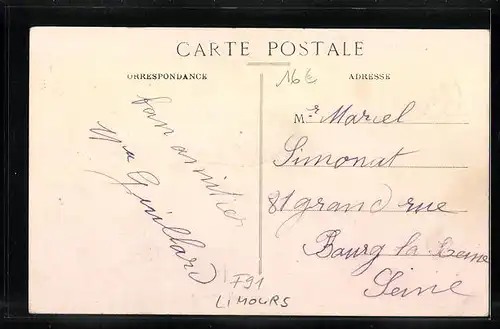 CARTE POSTALE
ORRESPONDANCE
ADRESSE
16€
Mr Marcel
Simonat
81 grand rue
Bourg la Reine
Seine
amitier
Guillard
F91
LIMOURS